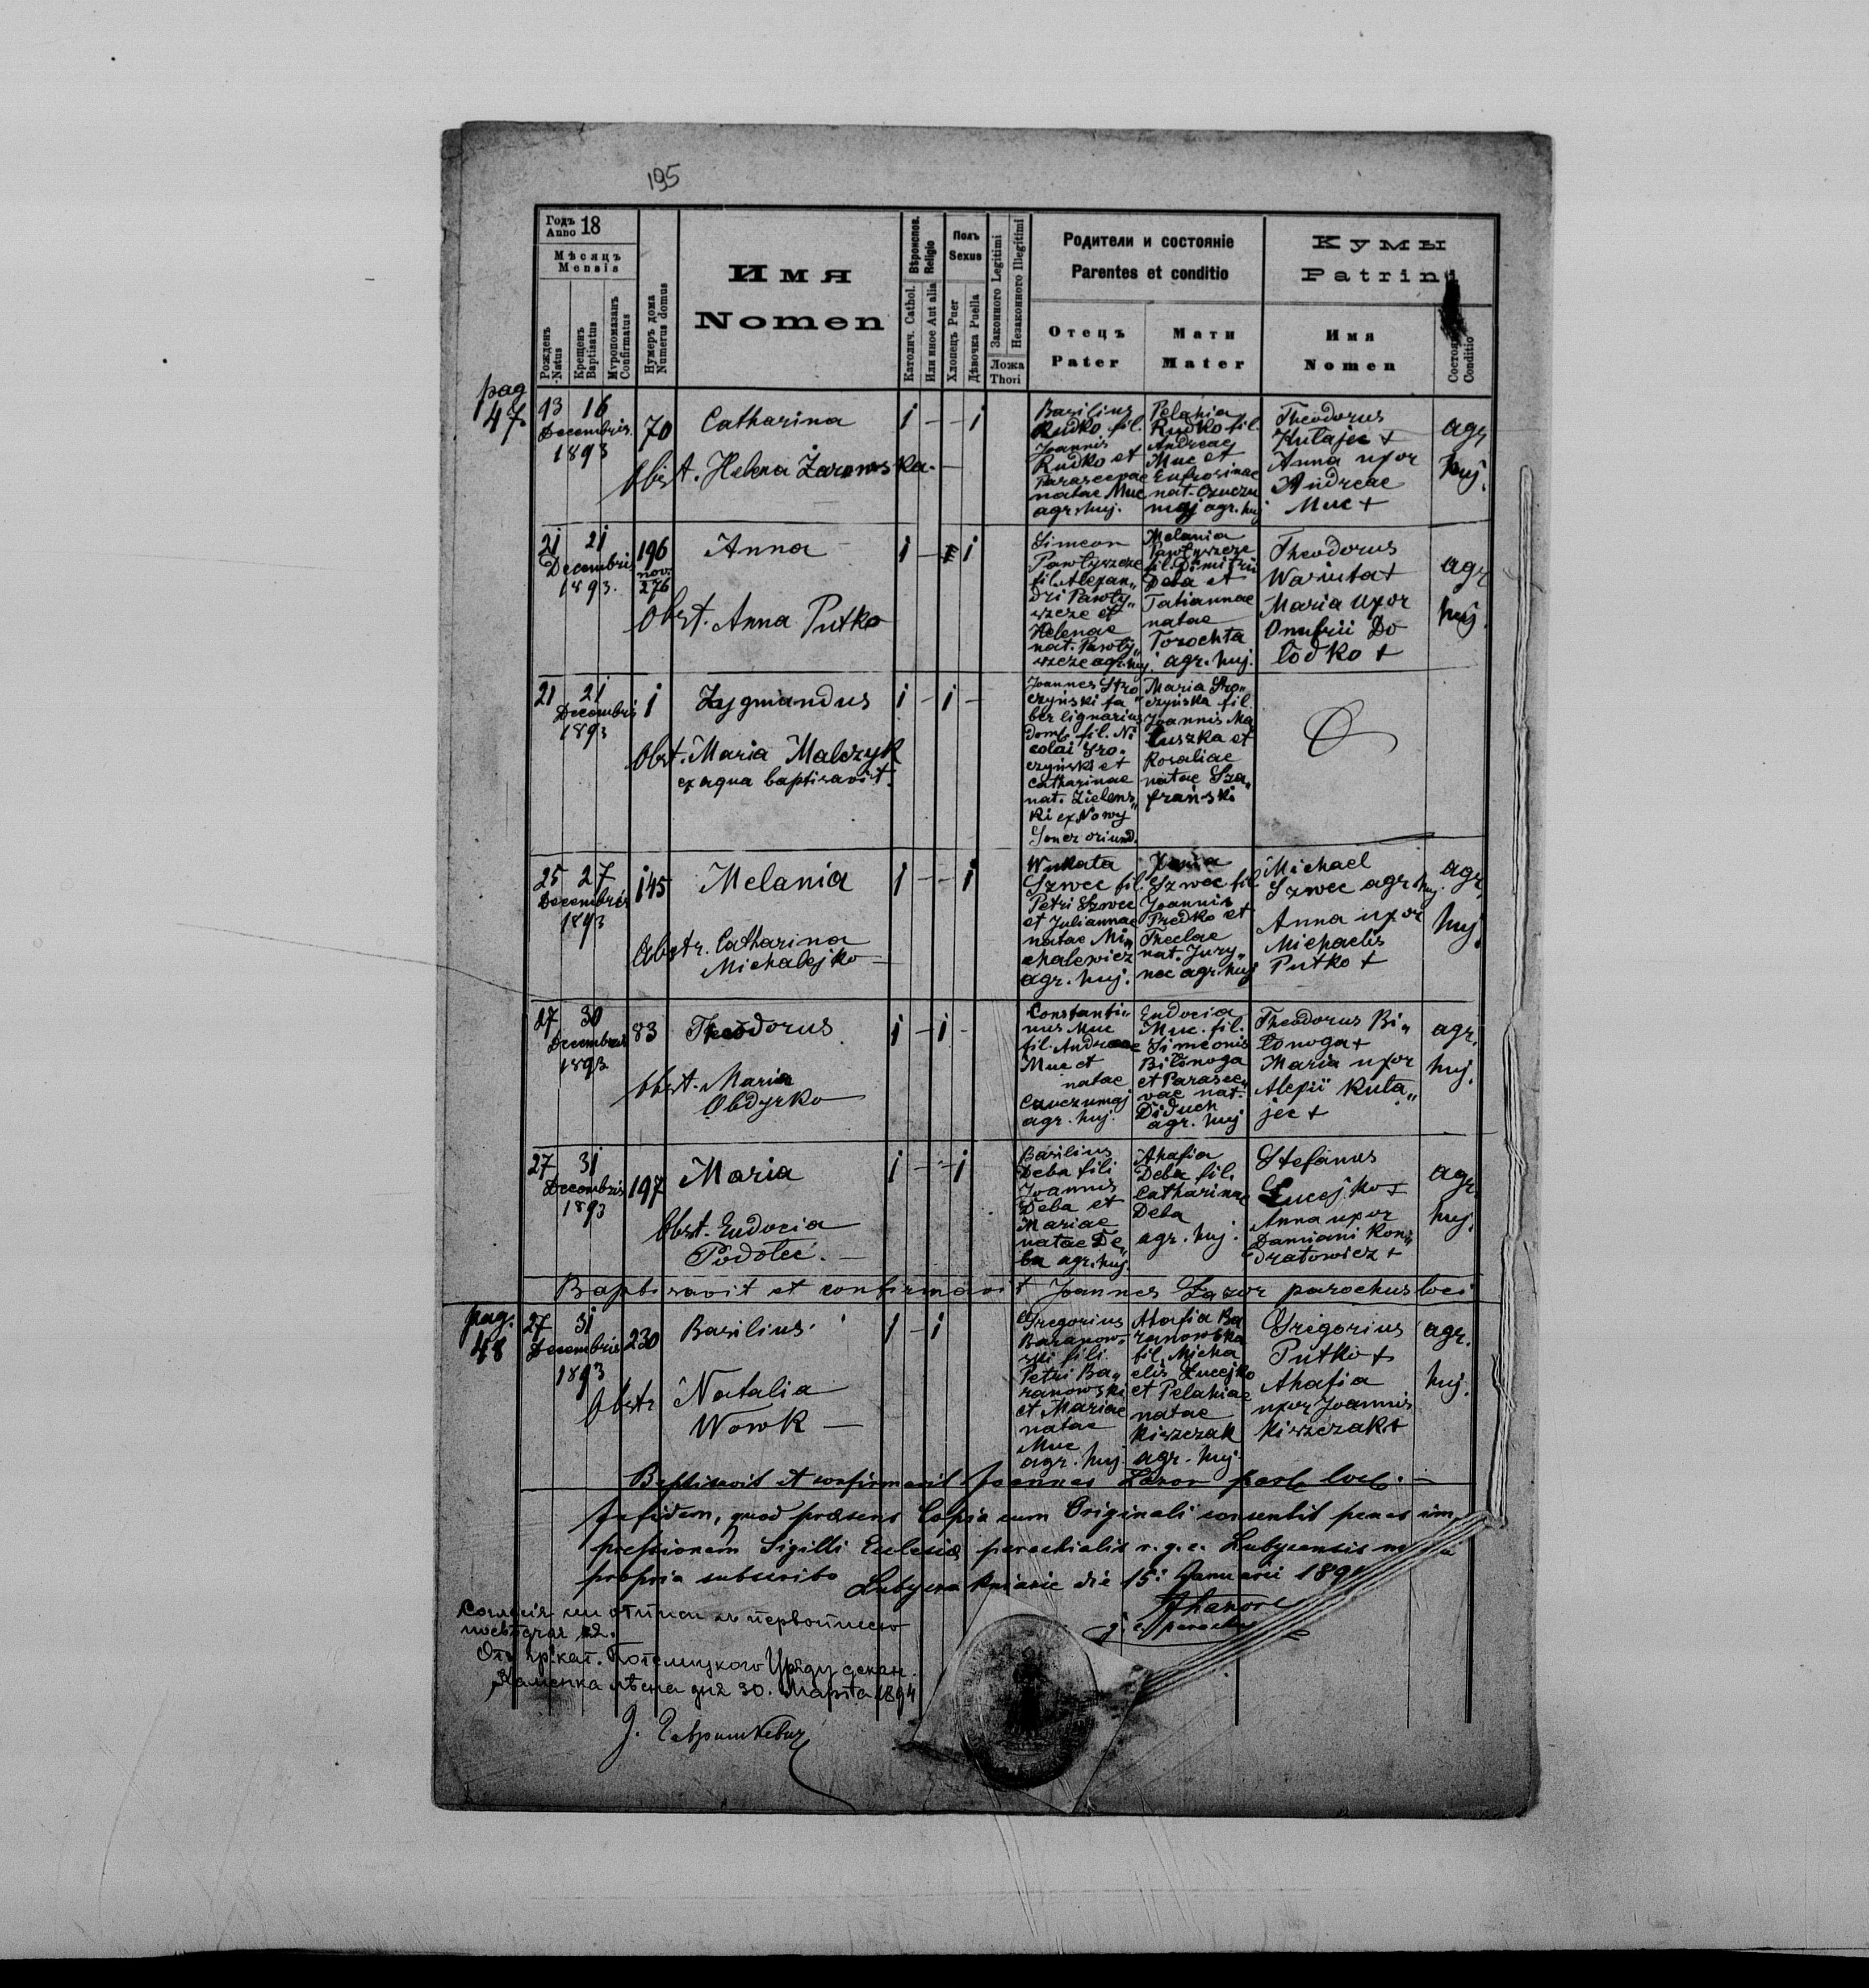 195
Годъ 18
Anno
Мѣсяцъ
Mensis
Рожденъ
Natus
Крещенъ
Baptisatus
Мѵропомазанъ
Confirmatus
Нумеръ дома
Numerus domus
Имя
Nomen
Вѣроиспов.
Religio
Католич. Cathol.
Или иное Aut alia
Полъ
Sexus
Хлопецъ Puer
Дѣвочка Puella
Законного Legitimi
Незаконного Illegitimi
Ложа
Thori
Родители и состоянiе
Parentes et conditio
Отецъ
Pater
Мати
Mater
Кумы
Patrini
Имя
Nomen
Conditio
pag
47
13 16
Decembris
1893
70
Catharina
1 - - 1
Obst. Helena Zarowska
Basilius
Rudko fil.
Joannis
Rudko et
Parascevae
natae Muc
agr. huj.
Pelahia
Rudko fil.
Andreae
Muc et
Eufrosinae
nat. Czuczu
maj agr. huj
Theodorus
Kułajec +
Anna uxor
Andreae
Muc +
agr.
huj.
21 21
Decembris
1893.
196
nov.
276
Anna
1 - 1
Obst. Anna Putko
Simeon
Pawłyszcze
fil. Alexan„
dri Pawły„
szcze et
Helenae
nat. Pawły„
szcze agr. huj
Melania
Pawłyszcze
fil. Dimitrii
Deba et
Tatiannae
natae
Torochta
agr. huj.
Theodorus
Wariuta +
Maria uxor
Onufrii Do
łodko +
agr
huj.
21 21
Decembris
1893
1
Zygmandus
1 - 1 -
Obst. Maria Malczyk
ex aqua baptisavit.
Joannes Sro
czyński fa
ber lignarius
dom. fil. Ni
colai Sro„
czyński et
Catharinae
nat. Zielens„
ki ex Nowy
Soncz oriund.
Maria Sro„
czyńska fil.
Joannis Ma
łuszka et
Rosaliae
natae Sza„
frański
25 27
Decembris
1893
145
Melania
1 - - 1
Obstr. Catharina
Michalejko
Szwec fil.
Petri Szwec
et Juliannae
natae Mi„
chalewicz
agr. huj.
Szwec fil
Joannis
Predko et
Theclae
nat. Jury„
nec agr. huj
Michael
Szwec agr huj.
Anna uxor
Michaelis
Putko +
agr.
huj.
27 30
Decembris
1893
83
Theodorus
1 - 1 -
Obst. Maria
Obdyrko
Constanti„
nus Muc
fil. Andreae
Muc et
natae
Czuczumaj
agr. huj.
Eudocia
Muc. fil.
Simeonis
Biłonoga
et Parasce„
vae nat.
Diduch
agr. huj
Theodorus Bi„
łonoga +
Maria uxor
Alexii Kuła„
jec +
agr.
huj.
27 31
Decembris
1893
197
Maria
1 - - 1
Obst. Eudocia
Podolec.
Basilius
Deba fili
Joannis
Deba et
Mariae
natae De„
ba agr. huj.
Ahafia
Deba fil.
Catharinae
Deba
agr. huj.
Stefanus
Łucejko +
Anna uxor
Damiani Kon„
dratowicz +
agr.
huj.
Baptisavit et confirmavit Joannes Lazor parochus loci
pag.
48
27 31
Decembris
1893
230
Basilius
1 - 1
Obstr Natalia
Wowk
Gregorius
Baranow„
ski fili
Petri Ba„
ranowski
et Mariae
natae
Muc
agr. huj.
Ahafia Ba
ranowska
fil. Micha
elis Łucejko
et Pelahiae
natae
Kiszczak
agr. huj.
Gregorius
Putko +
Ahafia
uxor Joannis
Kiszczak +
agr.
huj.
Baptisavit et confirmavit Joannes Lazor loci.
In fidem, quod praesens Copia cum Originali consentit penes im
pressionem Sigilli Ecclesiae parochialis r. g. c. Lubycensis
propria subscribo
die 15. Januarii
parochus
30. Марта 1894